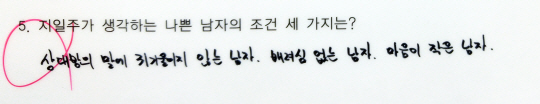 5. 지일주가 생각하는 나쁜 남자의 조건 세 가지는?
상대방의 말에 귀기울이지 않는 남자. 배려심 없는 남자. 마음이 작은 남자.